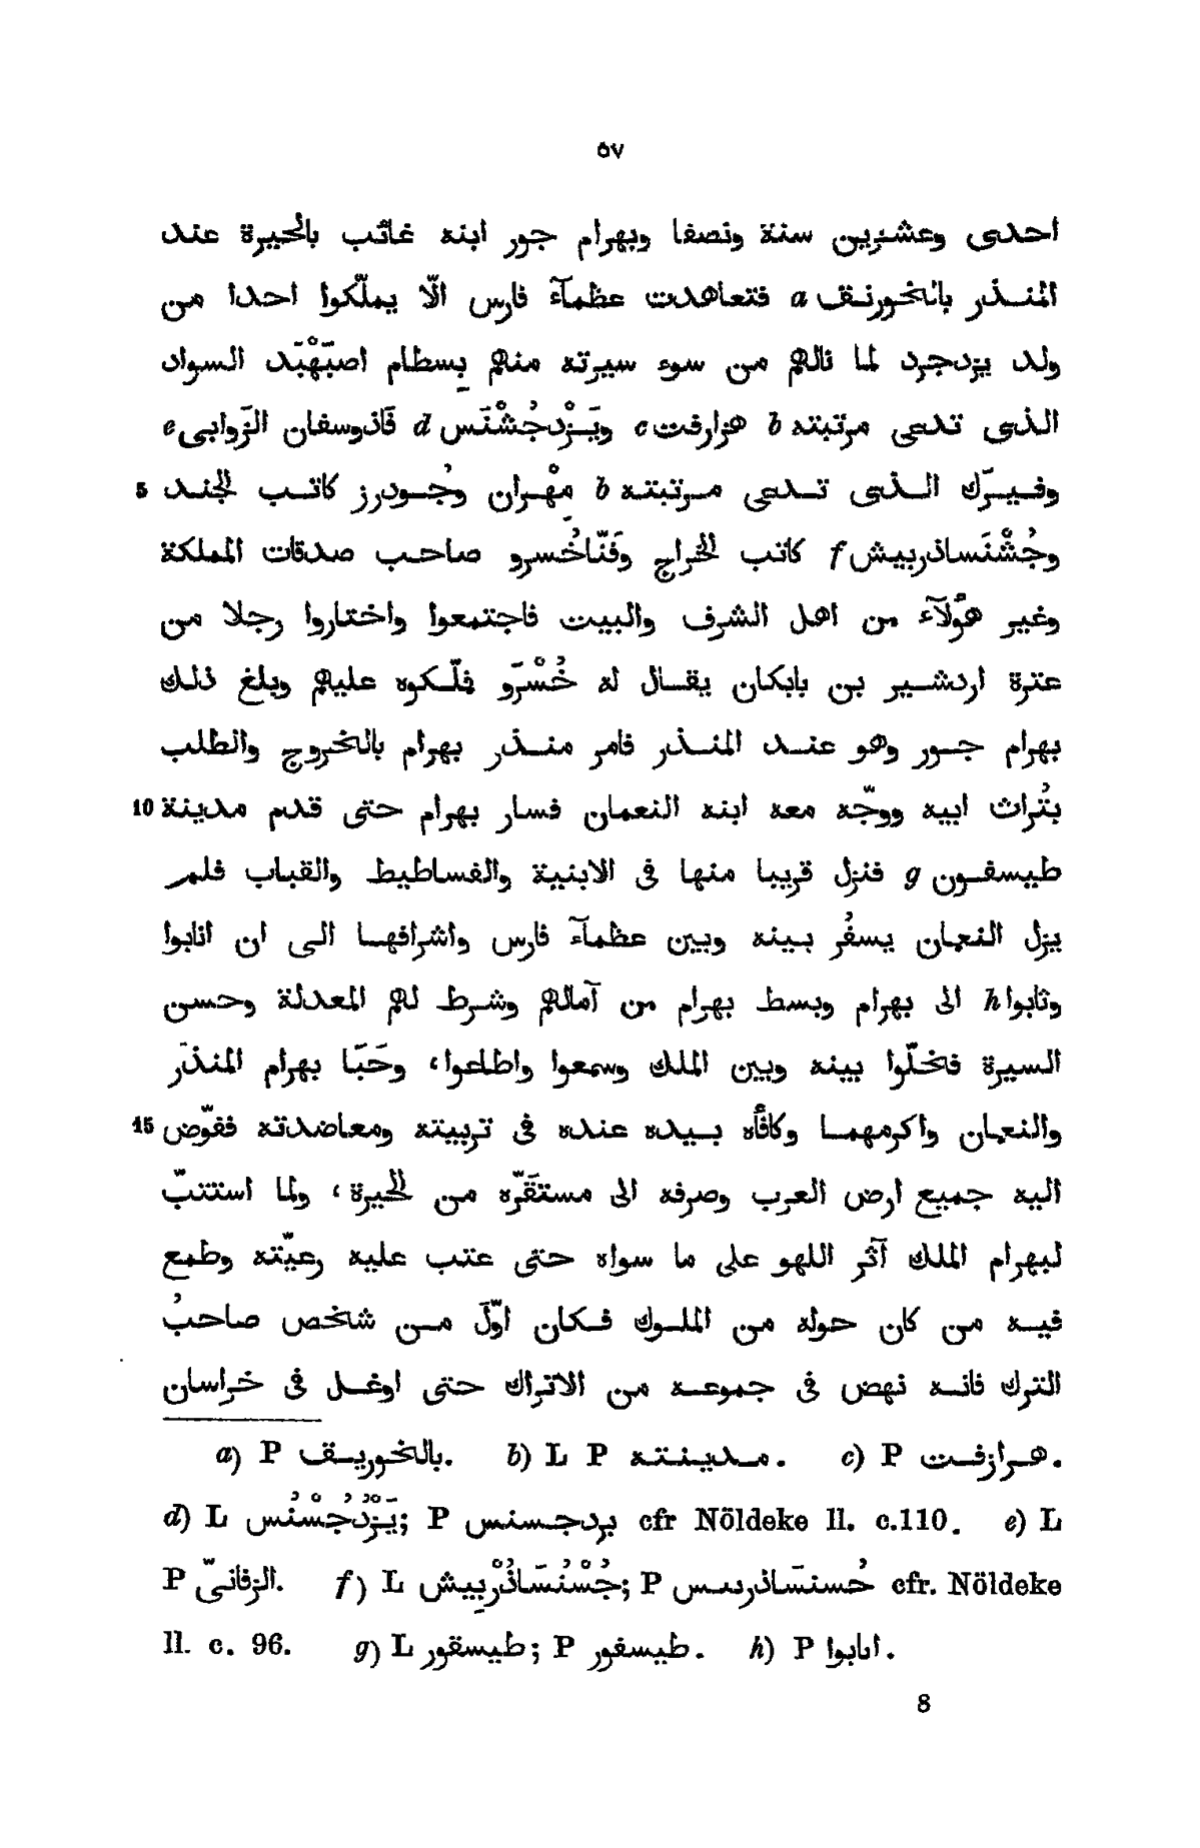 ٥٧
احدى وعشرين سنة ونصفا وبهرام جور ابنه غائب بالحيرة عند
المنذر بالخورنق a فتعاهدت عظمآء فارس الّا يملّكوا احدا من
ولد يزدجرد لما نالهم من سوء سيرته منهم بِسطام اصبَهْبَد السواد
الذى تدعى مرتبته b هزارفت c ويَزْدجُشْنَس d فَاذوسفان الزَّوابى e
وفيرَك الذى تدعى مرتبته b مِهْران وجُودرز كاتب الجند 5
وجُشْنَساذربيش f كاتب الخراج وفَنّاخُسرو صاحب صدقات المملكة
وغير هؤلآء من اهل الشرف والبيت فاجتمعوا واختاروا رجلا من
عترة اردشير بن بابكان يقال له خُسْرَو فملّكوه عليهم وبلغ ذلك
بهرام جور وهو عند المنذر فامر منذر بهرام بالخروج والطلب
بتُراث ابيه ووجّه معه ابنه النعمان فسار بهرام حتى قدم مدينة 10
طيسفون g فنزل قريبا منها فى الابنية والفساطيط والقباب فلم
يزل النعمان يسفُر بينه وبين عظمآء فارس واشرافها الى ان انابوا
وثابوا h الى بهرام وبسط بهرام من آمالهم وشرط لهم المعدلة وحسن
السيرة فخلّوا بينه وبين الملك وسمعوا واطاعوا، وحَبَا بهرام المنذرَ
والنعمان واكرمهما وكافأه بيده عنده فى تربيته ومعاضدته ففوّض 15
اليه جميع ارض العرب وصرفه الى مستقَرّه من الحيرة، ولما استتبّ
لبهرام الملك آثر اللهو على ما سواه حتى عتب عليه رعيّته وطمع
فيه من كان حوله من الملوك فكان اوّلَ من شخص صاحبُ
الترك فانه نهض فى جموعه من الاتراك حتى اوغل فى خراسان
a) P بالخوريق. b) L P مدينته. c) P هرازفت.
d) L يَزْدُجُسْنُس; P بردجسنس cfr Nöldeke ll. c.110. e) L
P الزفانىّ. f) L جُسْنُسَاذُرْبِيش; P حُسنسَاذربىس cfr. Nöldeke
ll. c. 96. g) L طيسقور; P طيسفور. h) P انابوا.
8